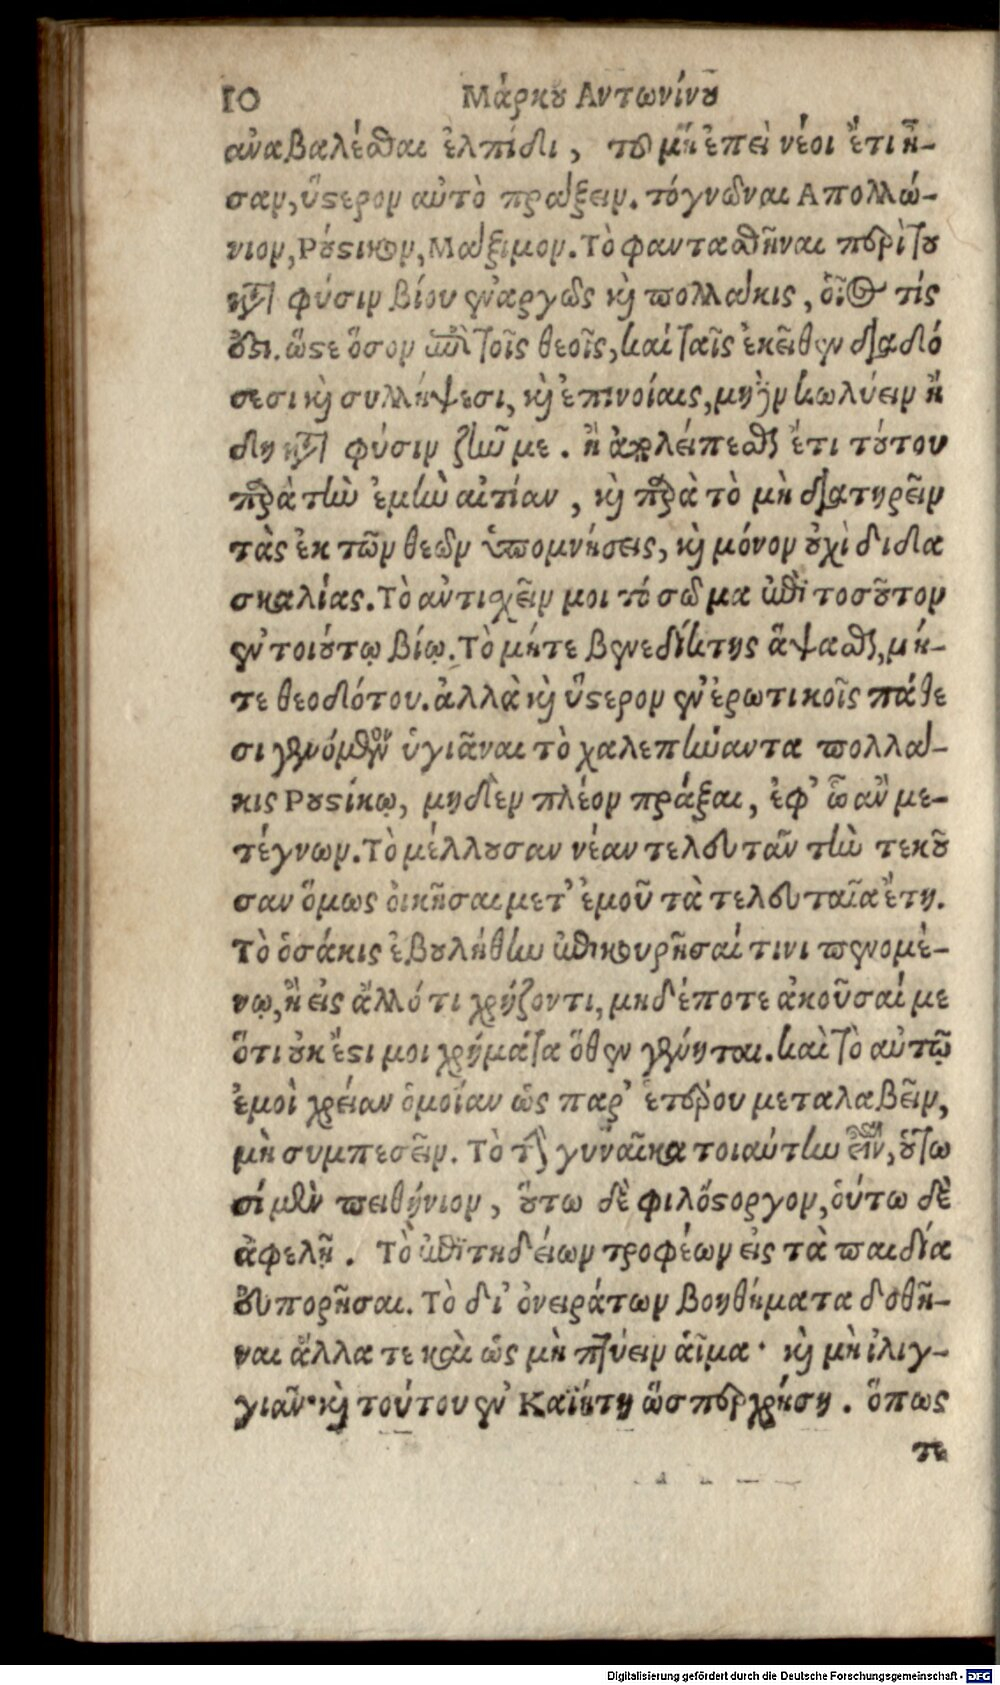 10 Μάρκου Αντωνίνου
αναβαλέσθαι ἐλπίδι, τοῦ μὴ ἐπεὶ νέοι ἔτι ἦ-
σαν, ὕστερον αὐτὸ πράξειν. τό γνῶναι Απολλώ-
νιον, Ρούστικον, Μάξιμον. Τὸ φαντασθῆναι περὶ τοῦ
κατὰ φύσιν βίου ἐναργῶς καὶ πολλάκις, οἷός τίς
ὅστι. ὥστε ὅσον ἐπὶ τοῖς θεοῖς, καί ταῖς ἐκεῖθεν διαδό
σεσι καὶ συλλήψεσι, καὶ ἐπινοίαις, μηδὲν κωλύειν ἤ
δη κατὰ φύσιν ζῆν με. ἢ ἀπολείπεσθαι ἔτι τούτου
παρὰ τὴν ἐμὴν αἰτίαν, καὶ παρὰ τὸ μὴ διατηρεῖν
τὰς ἐκ τῶν θεῶν ὑπομνήσεις, καὶ μόνον οὐχὶ διδα
σκαλίας. Τὸ αντισχεῖν μοι τό σῶμα ἐπὶ τοσοῦτον
ἐν τοιούτῳ βίῳ. Τὸ μήτε βενεδίκτης ἅψασθαι, μή-
τε θεοδότου. ἀλλὰ καὶ ὕστερον ἐν ἐρωτικοῖς πάθε
σι γενόμενον ὑγιᾶναι τὸ χαλεπήναντα πολλά-
κις Ρουστίκῳ, μηδὲν πλέον πράξαι, ἐφ᾽ ᾧ ἂν με-
τέγνων. Τὸ μέλλουσαν νέαν τελευτᾶν τὴν τεκοῦ
σαν ὅμως ὀικῆσαι μετ᾽ ἐμοῦ τὰ τελευταῖα ἔτη.
Τὸ ὁσάκις ἐβουλήθην ἐπικουρῆσαί τινι πενομέ-
νῳ, ἢ εἰς ἄλλό τι χρήζοντι, μηδέποτε ἀκοῦσαί με
ὅτι οὐκ ἔστι μοι χρήματα ὅθεν γένηται. καὶ τὸ αὐτῷ
ἐμοὶ χρείαν ὁμοίαν ὡς παρ᾽ ἑτέρου μεταλαβεῖν,
μὴ συμπεσεῖν. Τὸ τὴν γυναῖκα τοιαύτην εἶναι, οὕτω
σί μὲν πειθήνιον, οὕτω δὲ φιλόστοργον, ὁύτω δὲ
ἀφελῆ. Τὸ ἐπιτηδείων τροφέων εἰς τὰ παιδία
εὐπορῆσαι. Τὸ δι᾽ ὀνειράτων βοηθήματα δοθῆ-
ναι ἄλλα τε καὶ ὡς μὴ πτύειν ἁῖμα· καὶ μὴ ἰλιγ-
γιᾶν· καὶ τούτου ἐν Καϊήτῃ ὥσπερ χρήσῃ. ὅπως
τε
Digitalisierung gefördert durch die Deutsche Forschungsgemeinschaft - DFG